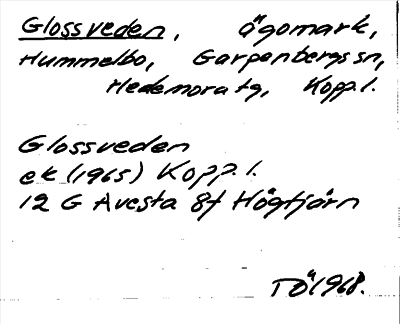 Glossveden, ägomark,
Hummelbo, Garpenbergs sn,
Hedemora tg, Kopp.l.
Glossveden
ek (1965) Kopp.l.
12 G Avesta 8f Högtjärn
TÖ 1968.